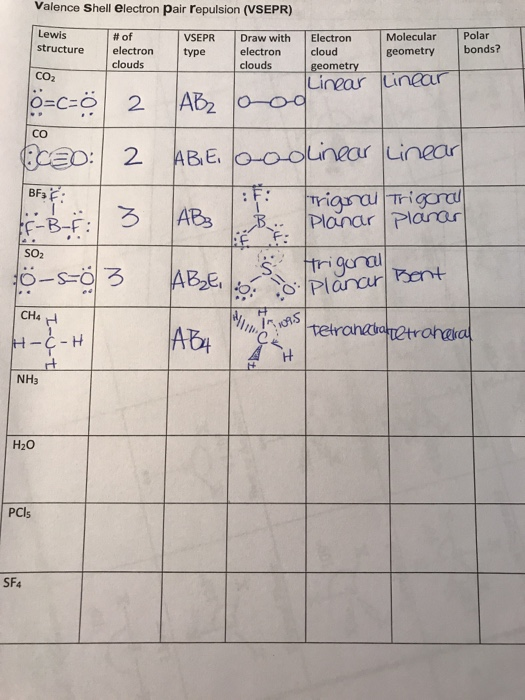 Valence Shell electron pair repulsion (VSEPR)
Lewis structure | # of electron clouds | VSEPR type | Draw with electron clouds | Electron cloud geometry | Molecular geometry | Polar bonds?
CO₂
Ö=C=Ö 2 AB₂ O-O-O Linear Linear
CO
:C≡O: 2 AB₁E₁ O-O-O Linear Linear
BF₃ F:
:F-B-F: 3 AB₃ :F: B :F F: Trigonal Planar Trigonal Planar
SO₂
:Ö-S=Ö 3 AB₂E₁ S O O trigonal Planar Bent
CH₄ H
H-C-H
H
AB₄ H H 109.5 C H H tetrahedral tetrahedral
NH₃
H₂O
PCl₅
SF₄